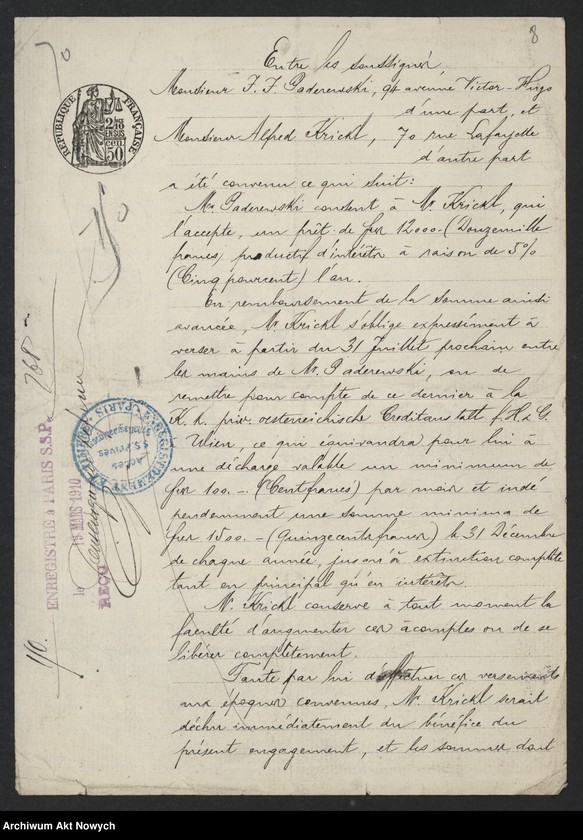 8
Entre les soussignés
Monsieur I. J. Paderewski, 94 avenue Victor-Hugo
d'une part, et
Monsieur Alfred Krickl, 70 rue Lafayette
d'autre part
a été convenu ce qui suit:
Mr. Paderewski consent à Mr. Krickl, qui
l'accepte, un prêt de frs 12000.- (Douzemille
francs) productif d'intérêts à raison de 5%
(Cinq pourcent) l'an.
En remboursement de la somme ainsi
avancée, Mr. Krickl s'oblige expressément à
verser à partir du 31 Juillet prochain entre
les mains de Mr. Paderewski, ou de
remettre pour compte de ce dernier à la
K. k. priv. oesterreichische Creditanstalt f. H. & G.
Wien, ce qui équivaudra pour lui à
une décharge valable un minimum de
frs 100.- (Cent francs) par mois et indé
pendemment une somme minima de
frs 1500.- (Quinzecentsfrancs) le 31 Décembre
de chaque année, jusqu'à extinction complète
tant en principal qu'en intérêts.
Mr. Krickl conserve à tout moment la
faculté d'augmenter ces acomptes ou de se
libérer complètement.
Faute par lui d'effectuer ces versements
aux époques convenues, Mr. Krickl serait
déchu immédiatement du bénéfice du
présent engagement, et les sommes dont
RÉPUBLIQUE FRANÇAISE
50
ENREGISTRÉ à PARIS S.S.P.
le 15 MARS 1910
REÇU
ENREGISTREMENT
PARIS
Actes
S.S. Privés
Archiwum Akt Nowych